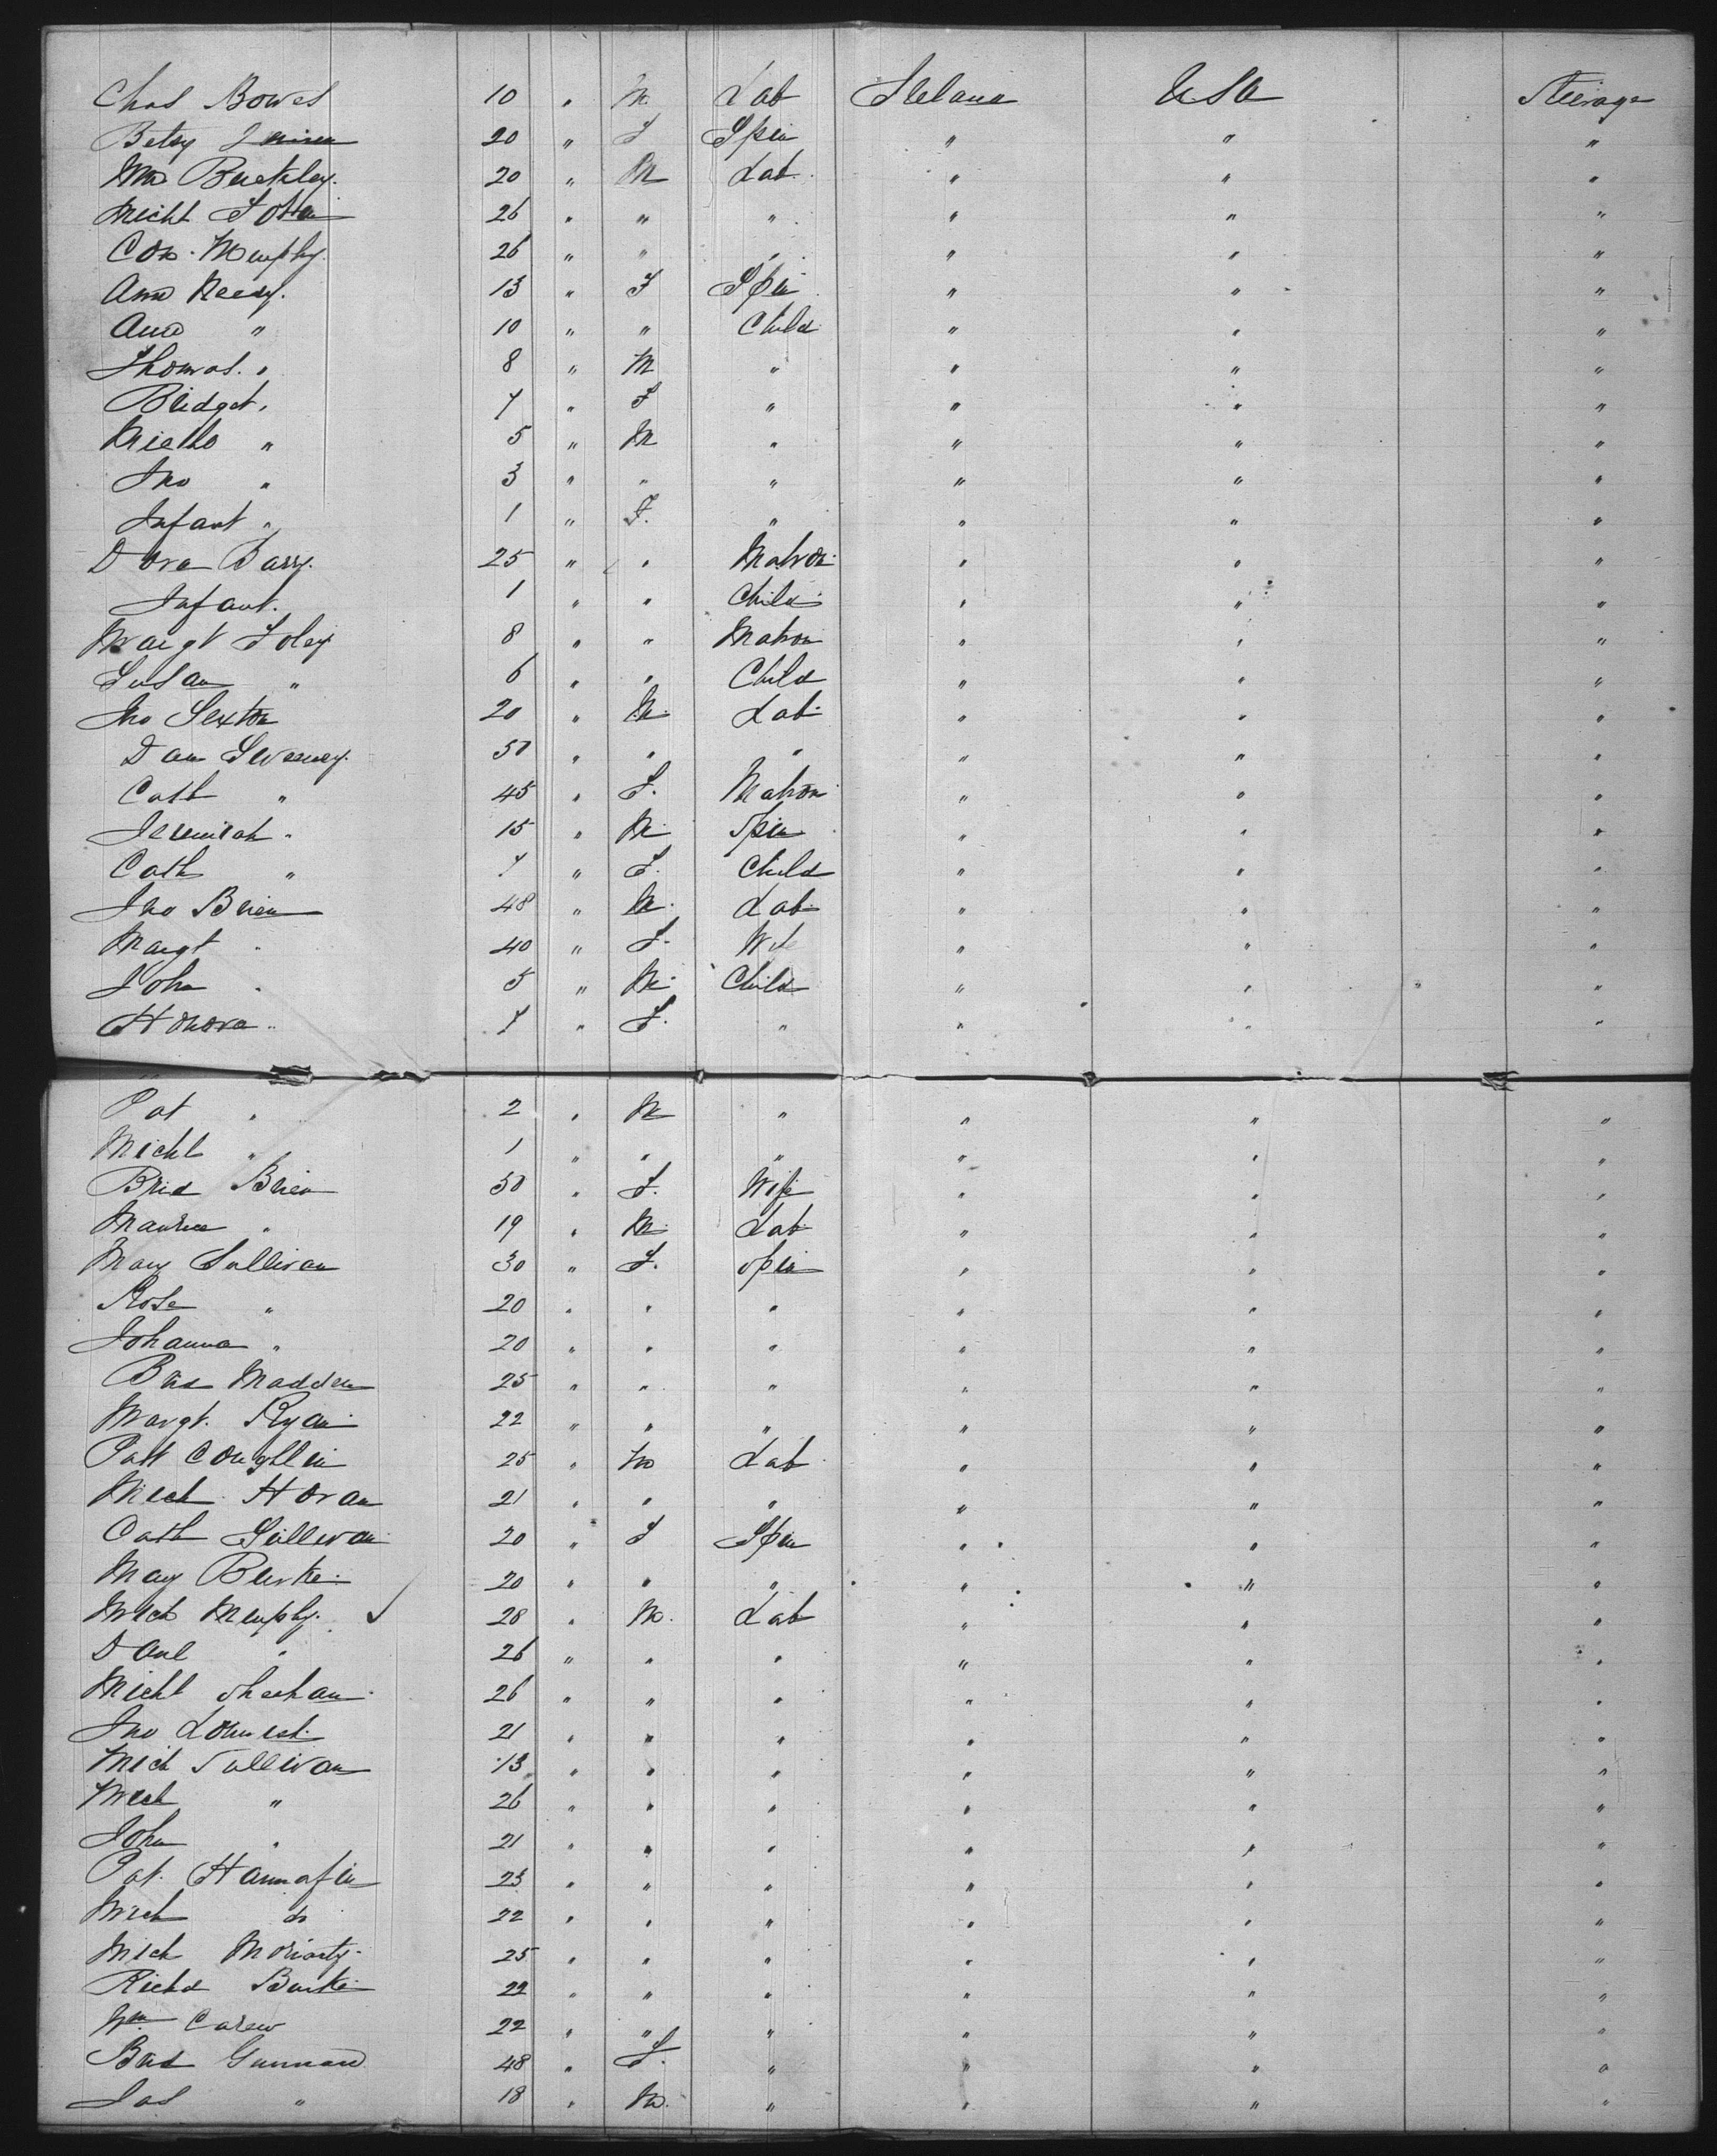 Chas Bowes 10 " M Lab Ireland USA Steerage
Betsy 20 " F Spin " " "
Wm Buckley. 20 " M Lab. " " "
Michl 26 " " " " " "
Con. Murphy. 26 " " " " " "
Ann Reedy. 13 " F Spin " " "
Ann " 10 " " Child " " "
Thomas. " 8 " M " " " "
Bridget. " 7 " F " " " "
" 5 " M " " " "
Jno " 3 " " " " " "
Infant " 1 " F. " " " "
Dora Barry. 25 " " Matron " " "
Infant. 1 " " Child " " "
Margt Foley 8 " " Matron " " "
Susan " 6 " " Child " " "
Jno Sexton 20 " M. Lab. " " "
Dan Sweeney. 50 " " " " " "
Cath " 45 " F. Matron " " "
Jeremiah " 15 " M. Spin " " "
Cath " 7 " F. Child " " "
Jno Brien 48 " M. Lab. " " "
Margt " 40 " F. Wife " " "
John " 5 " M. Child " " "
Honora " 7 " F. " " " "
Pat " 2 " M " " " "
Michl " 1 " " " " " "
Brid Brien 50 " F. Wife " " "
Maurice " 19 " M. Lab. " " "
Mary Sullivan 30 " F. Spin " " "
Rose " 20 " " " " " "
Johanna " 20 " " " " " "
Brid Madden 25 " " " " " "
Margt. Ryan 22 " " " " " "
Patk Coughlin 25 " M Lab " " "
Mich. Horan 21 " " " " " "
Cath Sullivan 20 " F Spin " " "
Mary Burke. 20 " " " " " "
Mich Murphy. ✓ 28 " M. Lab " " "
Danl " 26 " " " " " "
Michl Sheehan 26 " " " " " "
Jno 21 " " " " " "
Mich Sullivan 13 " " " " " "
Mich " 26 " " " " " "
John " 21 " " " " " "
Pat. Hannafin 23 " " " " " "
Mich do 22 " " " " " "
Mich Moriarty. 25 " " " " " "
Richd Burke 22 " " " " " "
Wm Carew 22 " " " " " "
Brid 48 " F. " " " "
Jas " 18 " M. " " " "